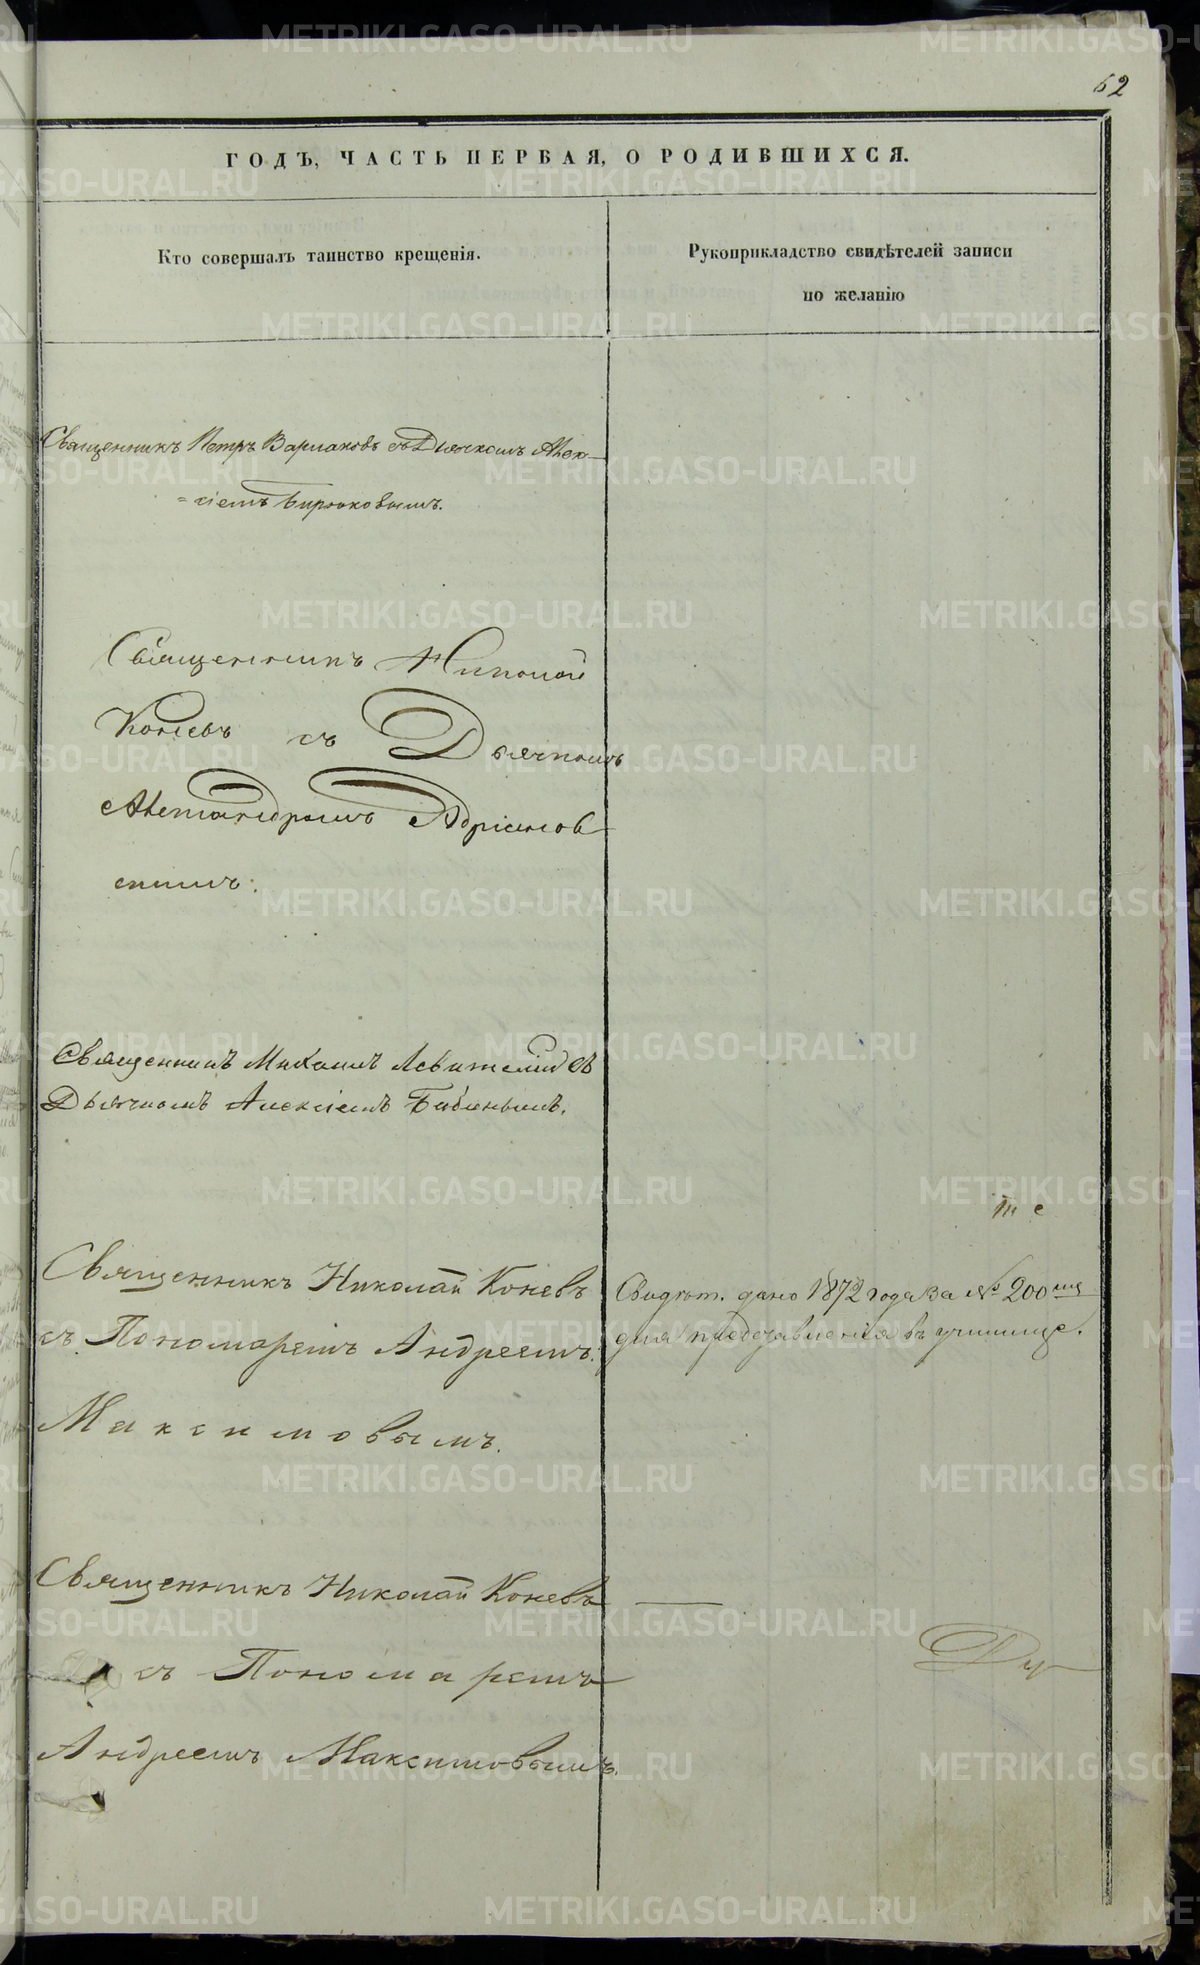 62
ГОДЪ, ЧАСТЬ ПЕРВАЯ, О РОДИВШИХСЯ.
Кто совершалъ таинство крещенія.
Рукоприкладство свидѣтелей записи
по желанію
Священникъ Петръ Варлаковъ съ Дьячкомъ Алек-
=сіемъ Бирюковымъ.
Священникъ Николай
Коневъ съ Дьячкомъ
Александромъ Адріанов
скимъ.
Священникъ Михаилъ Левитскій съ
Дьячкомъ Алексіемъ Бабинымъ.
Священникъ Николай Коневъ
съ Пономаремъ Андреемъ
Максимовымъ.
Свидѣт. дано 1872 года за № 200
для представленія въ училище.
Священникъ Николай Коневъ
съ Пономаремъ
Андреемъ Максимовымъ.
METRIKI.GASO-URAL.RU